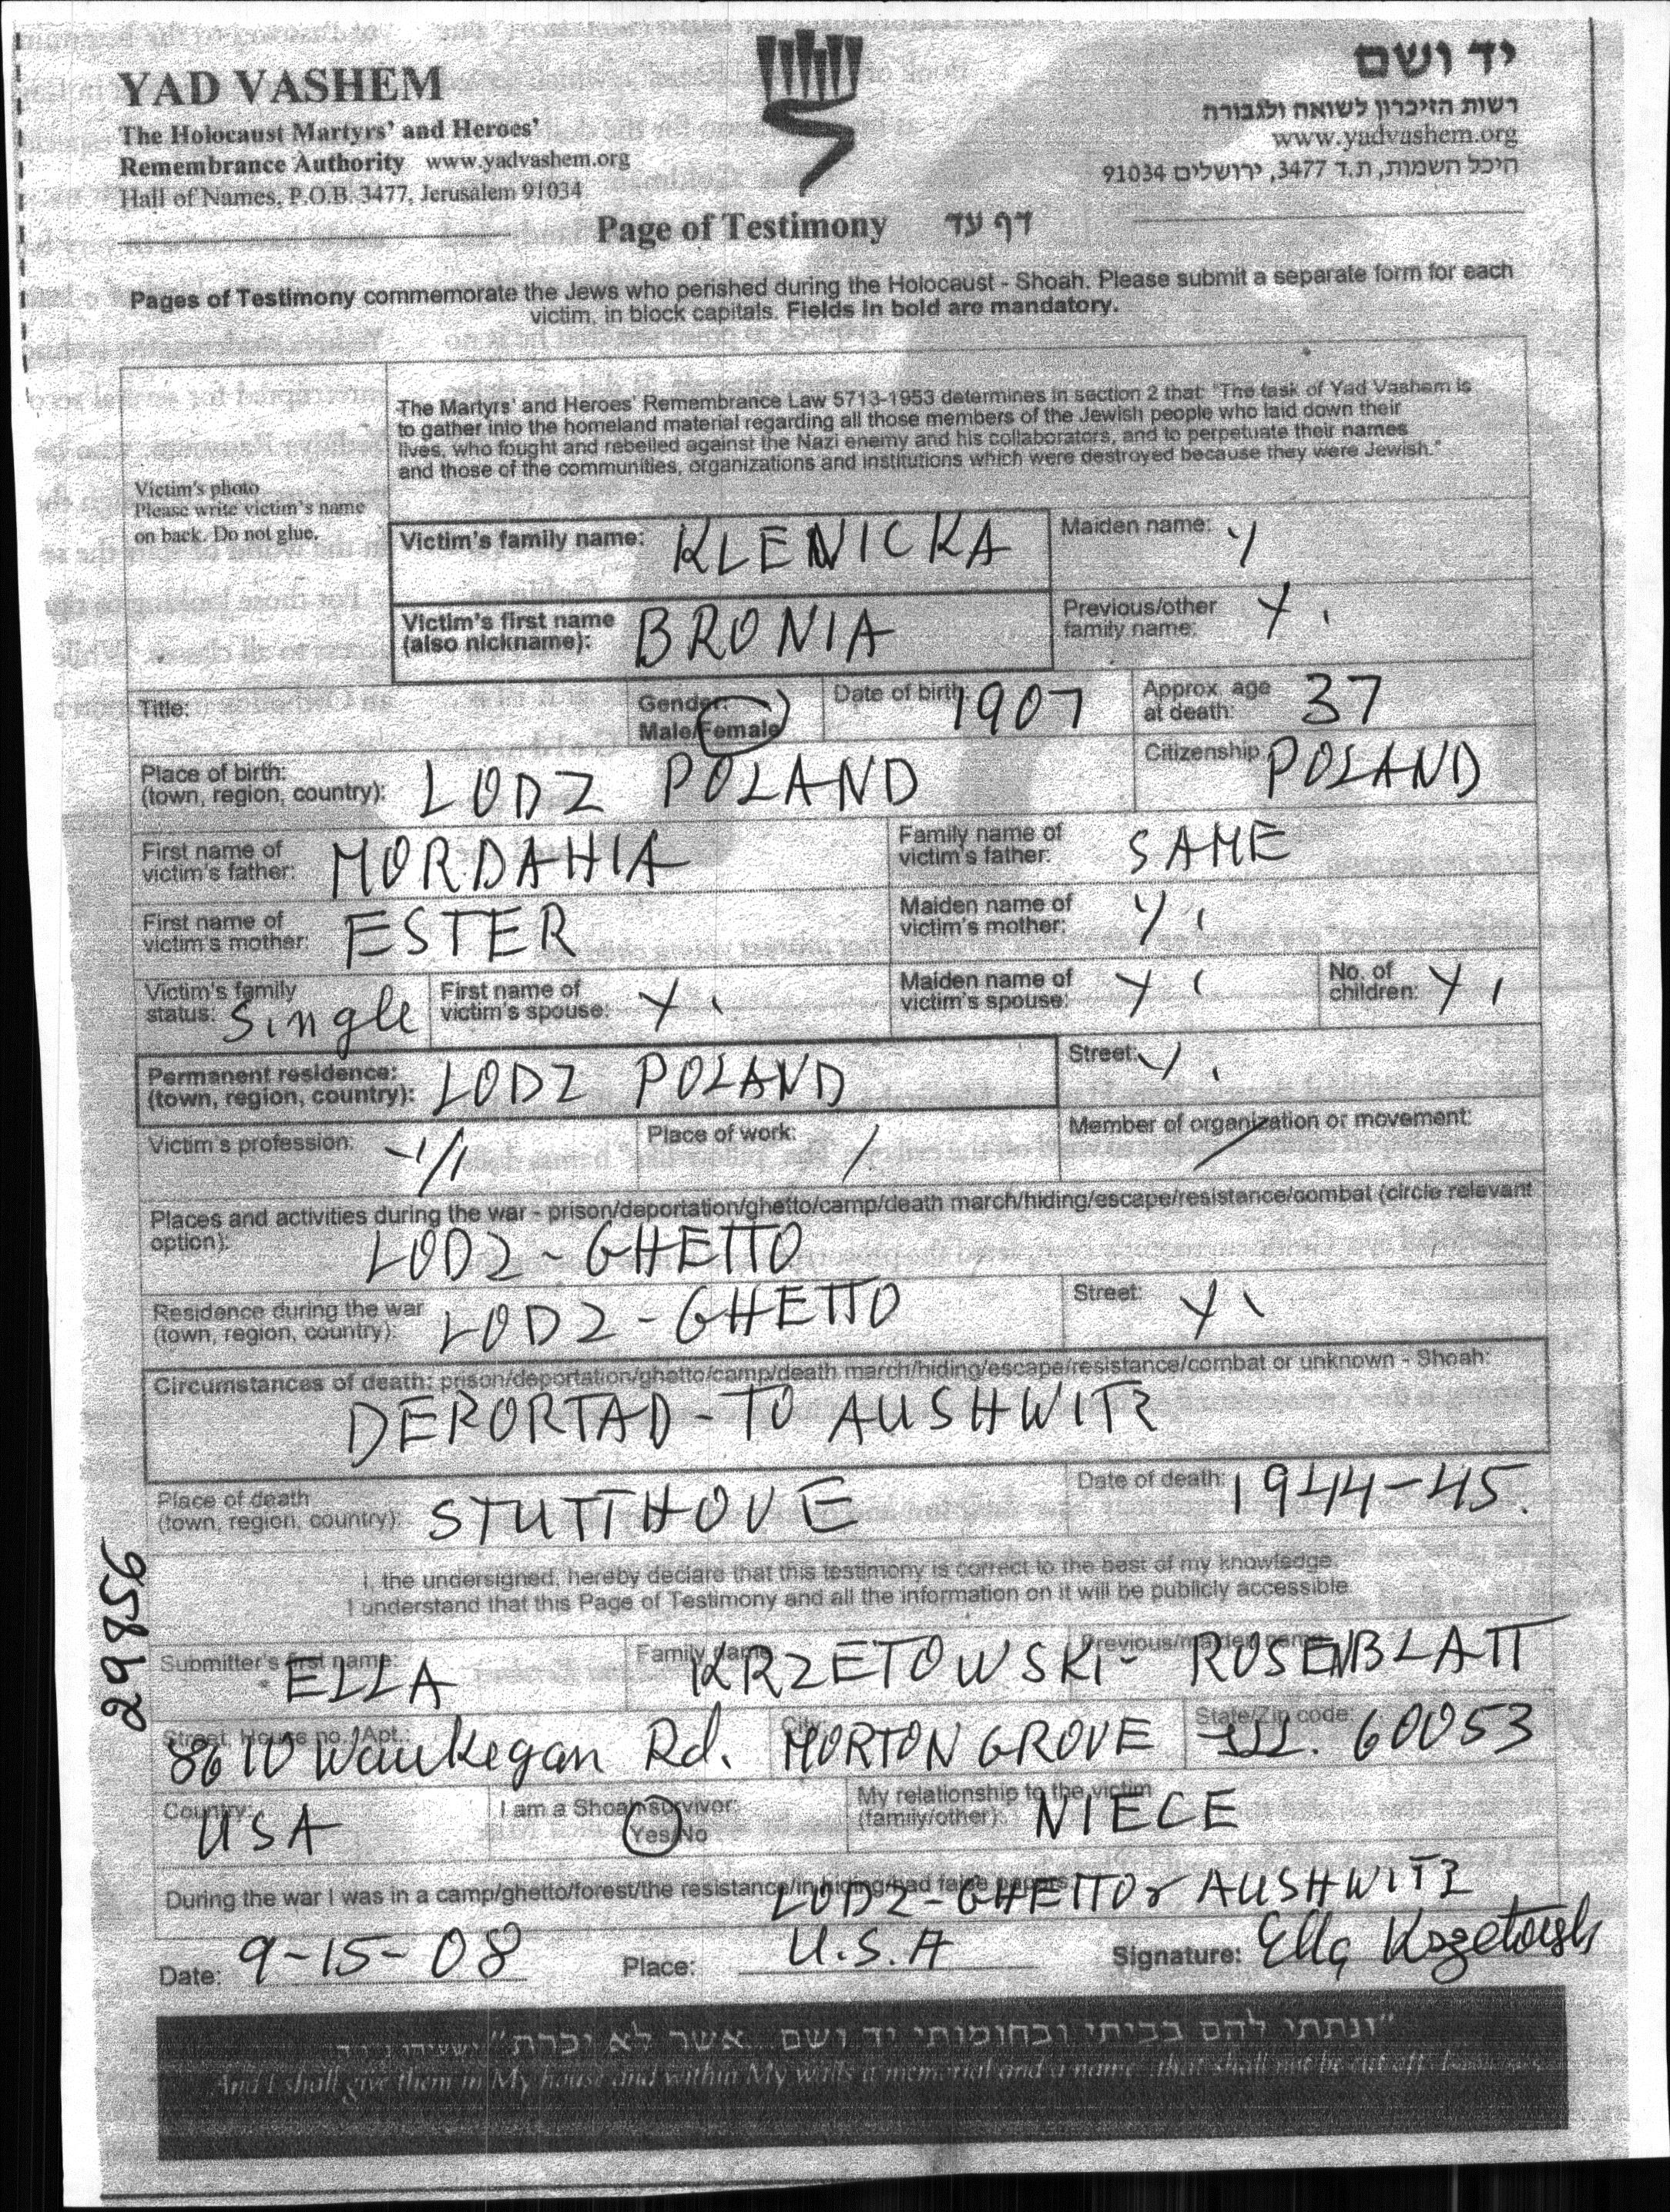 YAD VASHEM
The Holocaust Martyrs' and Heroes'
Remembrance Authority www.yadvashem.org
Hall of Names, P.O.B. 3477, Jerusalem 91034
יד ושם
רשות הזיכרון לשואה ולגבורה
www.yadvashem.org
היכל השמות, ת.ד 3477, ירושלים 91034
Page of Testimony דף עד
Pages of Testimony commemorate the Jews who perished during the Holocaust - Shoah. Please submit a separate form for each
victim, in block capitals. Fields in bold are mandatory.
The Martyrs' and Heroes' Remembrance Law 5713-1953 determines in section 2 that: "The task of Yad Vashem is
to gather into the homeland material regarding all those members of the Jewish people who laid down their
lives, who fought and rebelled against the Nazi enemy and his collaborators, and to perpetuate their names
and those of the communities, organizations and institutions which were destroyed because they were Jewish."
Victim's photo
Please write victim's name
on back. Do not glue.
Victim's family name: KLENICKA Maiden name: y
Victim's first name
(also nickname): BRONIA Previous/other
family name: y.
Title: Gender:
Male/Female Date of birth: 1907 Approx. age
at death: 37
Place of birth:
(town, region, country): LODZ POLAND Citizenship: POLAND
First name of
victim's father: MORDAHIA Family name of
victim's father: SAME
First name of
victim's mother: ESTER Maiden name of
victim's mother: y.
Victim's family
status: Single First name of
victim's spouse: y. Maiden name of
victim's spouse: y. No. of
children: y.
Permanent residence:
(town, region, country): LODZ POLAND Street: y.
Victim's profession: Place of work: / Member of organization or movement: /
Places and activities during the war - prison/deportation/ghetto/camp/death march/hiding/escape/resistance/combat (circle relevant
option): LODZ - GHETTO
Residence during the war
(town, region, country): LODZ - GHETTO Street: y.
Circumstances of death: prison/deportation/ghetto/camp/death march/hiding/escape/resistance/combat or unknown - Shoah:
DEPORTAD - TO AUSHWITZ
Place of death
(town, region, country): STUTTHOVE Date of death: 1944-45.
I, the undersigned, hereby declare that this testimony is correct to the best of my knowledge.
I understand that this Page of Testimony and all the information on it will be publicly accessible.
29856
Submitter's first name: ELLA Family name: KRZETOWSKI- Previous/maiden name: ROSENBLATT
Street, House no./Apt.: 8610 Waukegan Rd. City: MORTON GROVE State/Zip code: ILL. 60053
Country: USA I am a Shoah survivor:
Yes/No My relationship to the victim
(family/other): NIECE
During the war I was in a camp/ghetto/forest/the resistance/in hiding/had false papers: LODZ - GHETTO & AUSHWITZ
Date: 9-15-08 Place: U.S.A Signature: Ella Krzetowski
"ונתתי להם בביתי ובחומותי יד ושם...אשר לא יכרת"
And I shall give them in My house and within My walls a memorial and a name...that shall not be cut off